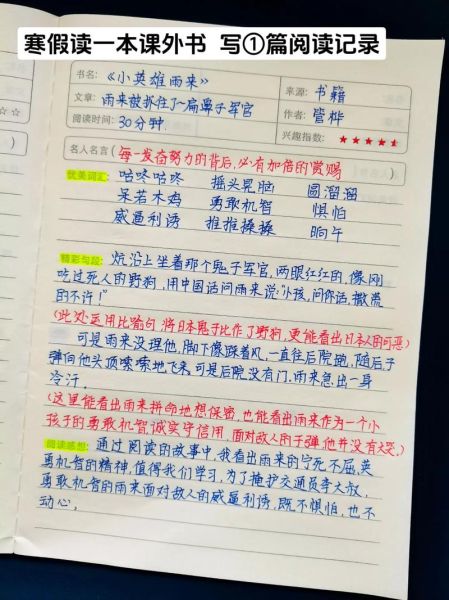 寒假读一本课外书 写①篇阅读记录
书名：《小英雄雨来》
来源：书籍
文章：雨来被抓住了~扁鼻子军官
作者：管桦
阅读时间：30分钟
兴趣指数：★★★★★
名人名言（每一发奋努力的背后，必有加倍的赏赐
优美词汇：咕咚咕咚 摇头晃脑 圆溜溜
呆若木鸡 勇敢机智 惧怕
威逼利诱 推推搡搡 晌午
精彩句段：炕沿上坐着那个鬼子军官，两眼红红的，像刚
吃过死人的野狗，用中国话问雨来说“小孩，问你话，撒谎
的不许！”
（此处运用比喻句 将日本鬼子比作了野狗，更能看出日本人的可恶）
可是雨来没理他，脚下像踩着风，一直往后院跑，随后子
弹向他头顶嗖嗖地飞来，可是后院没有门，雨来急出一身
冷汗。
（这里能看出雨来拼命地想保密，也能看出雨来作为一个小
孩子的勇敢机智，诚实守信用，面对敌人的子弹他并没有
阅读感想：通过阅读的故事中，我看出雨来的宁死不屈，英
勇机智的精神，值得我们学习，为了掩护交通员李大叔，
勇敢机智的雨来面对敌人的威逼利诱，既不惧怕，也不
动心。